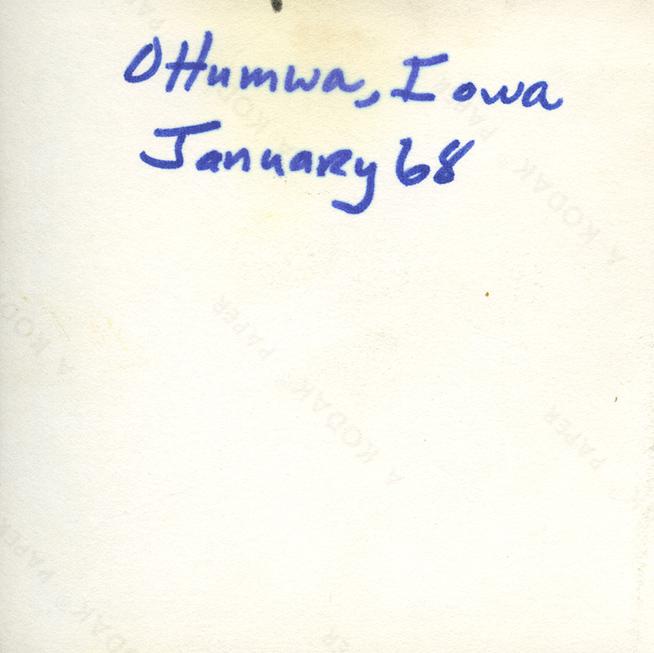 Ottumwa, Iowa
January 68
A KODAK PAPER
A KODAK PAPER
A KODAK
A KODAK PAPER
PAPER
PAPER